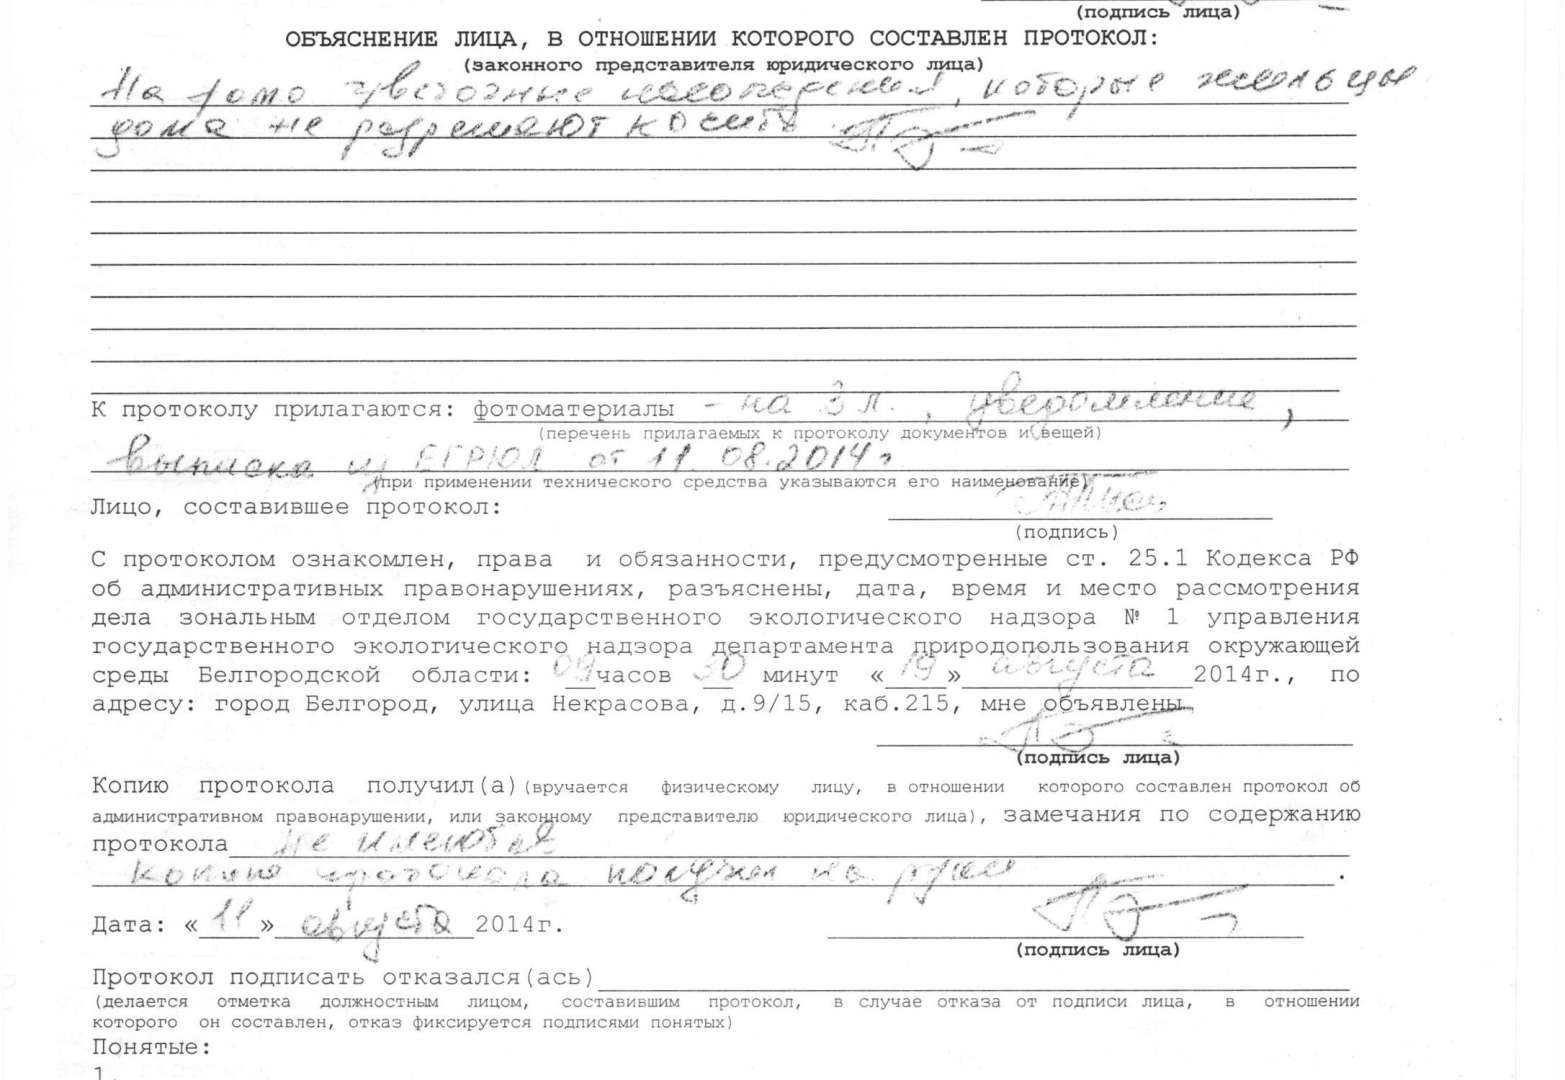 (подпись лица)
ОБЪЯСНЕНИЕ ЛИЦА, В ОТНОШЕНИИ КОТОРОГО СОСТАВЛЕН ПРОТОКОЛ:
(законного представителя юридического лица)
На фото цветочные которые жильцы
дома не разрешают косить
К протоколу прилагаются: фотоматериалы - на 3 л., уведомление,
(перечень прилагаемых к протоколу документов и вещей)
выписка из ЕГРЮЛ от 11.08.2014г
(при применении технического средства указываются его наименование)
Лицо, составившее протокол:
(подпись)
С протоколом ознакомлен, права и обязанности, предусмотренные ст. 25.1 Кодекса РФ
об административных правонарушениях, разъяснены, дата, время и место рассмотрения
дела зональным отделом государственного экологического надзора № 1 управления
государственного экологического надзора департамента природопользования окружающей
среды Белгородской области: 09 часов 30 минут «19» августа 2014г., по
адресу: город Белгород, улица Некрасова, д.9/15, каб.215, мне объявлены
(подпись лица)
Копию протокола получил(а)(вручается физическому лицу, в отношении которого составлен протокол об
административном правонарушении, или законному представителю юридического лица), замечания по содержанию
протокола не имеются
копию протокола получил на руки.
Дата: «11» августа 2014г.
(подпись лица)
Протокол подписать отказался(ась)
(делается отметка должностным лицом, составившим протокол, в случае отказа от подписи лица, в отношении
которого он составлен, отказ фиксируется подписями понятых)
Понятые:
1.